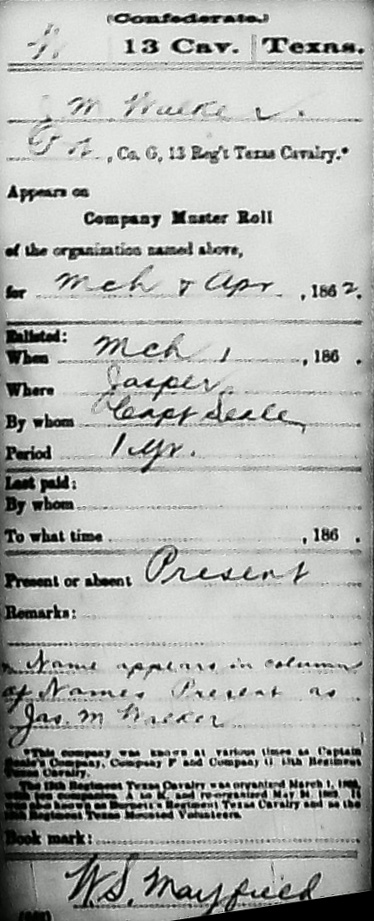 (Confederate.)
W 13 Cav. Texas.
J M Walker
Pvt, Co. G, 13 Reg't Texas Cavalry.*
Appears on
Company Muster Roll
of the organization named above,
for Mch & Apr, 1862.
Enlisted:
When Mch 1, 186 .
Where Jasper
By whom Capt Seale
Period 1 yr.
Last paid:
By whom
To what time , 186 .
Present or absent Present
Remarks:
Name appears in column
of Names Present as
Jas. M Walker
*This company was known at various times as Captain
Seale's Company, Company F and Company G 13th Regiment
Texas Cavalry.
The 13th Regiment Texas Cavalry was organized March 1, 1862,
with ten companies, A to K, and re-organized May 24, 1862. It
was also known as Burnett's Regiment Texas Cavalry and as the
13th Regiment Texas Mounted Volunteers.
Book mark:
W.S. Mayfield